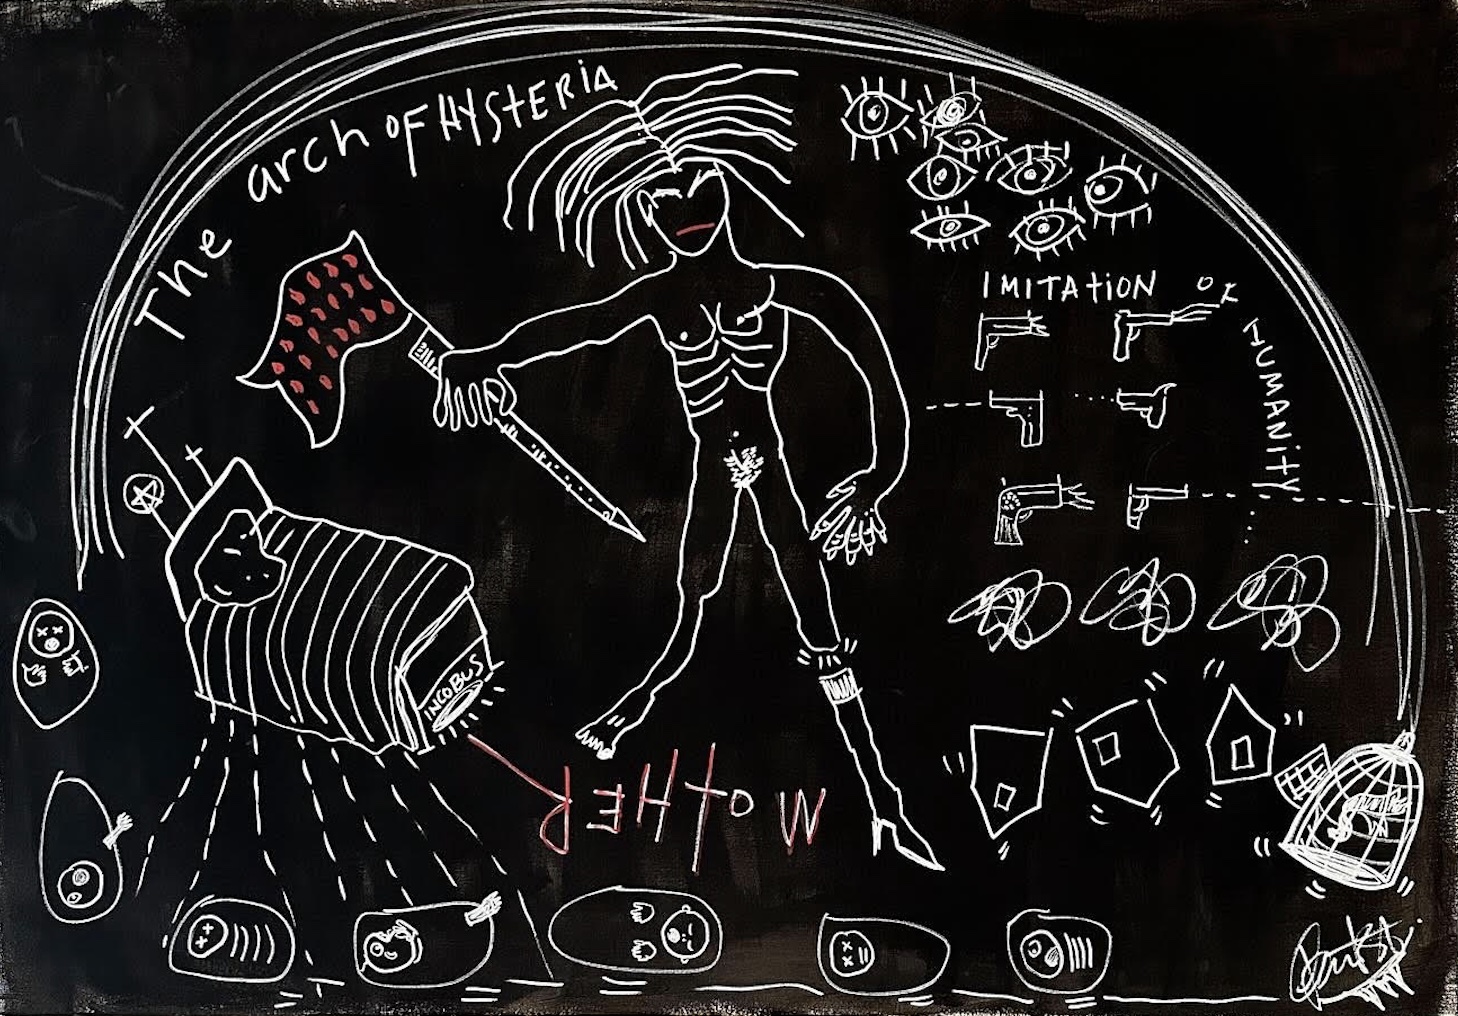 The arch OF HYSTERIA
IMITATION OF HUMANITY
INCOBUS
MOTHER